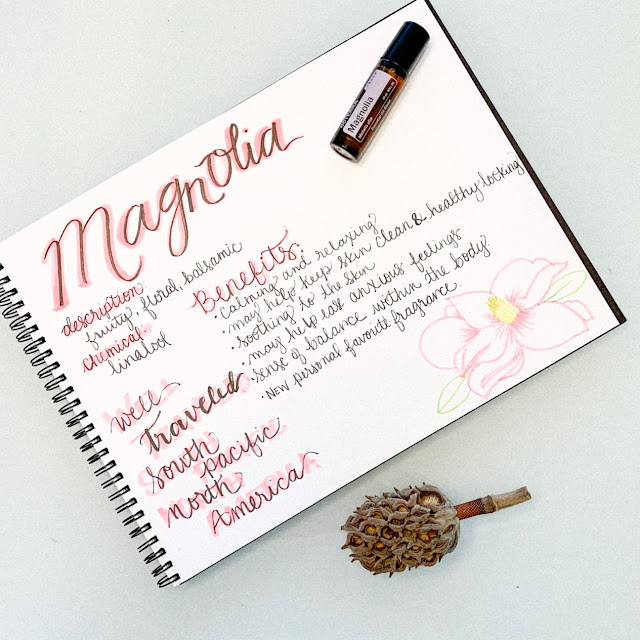 Magnolia
Magnolia
description:
fruity, floral, balsamic
chemical:
linalool
Benefits:
· Calming and relaxing
· may help keep skin clean & healthy-looking
· Soothing to the skin
· may help ease anxious feelings
· sense of balance within the body
· New personal favorite fragrance.
Well
Traveled
South
Pacific
North
America